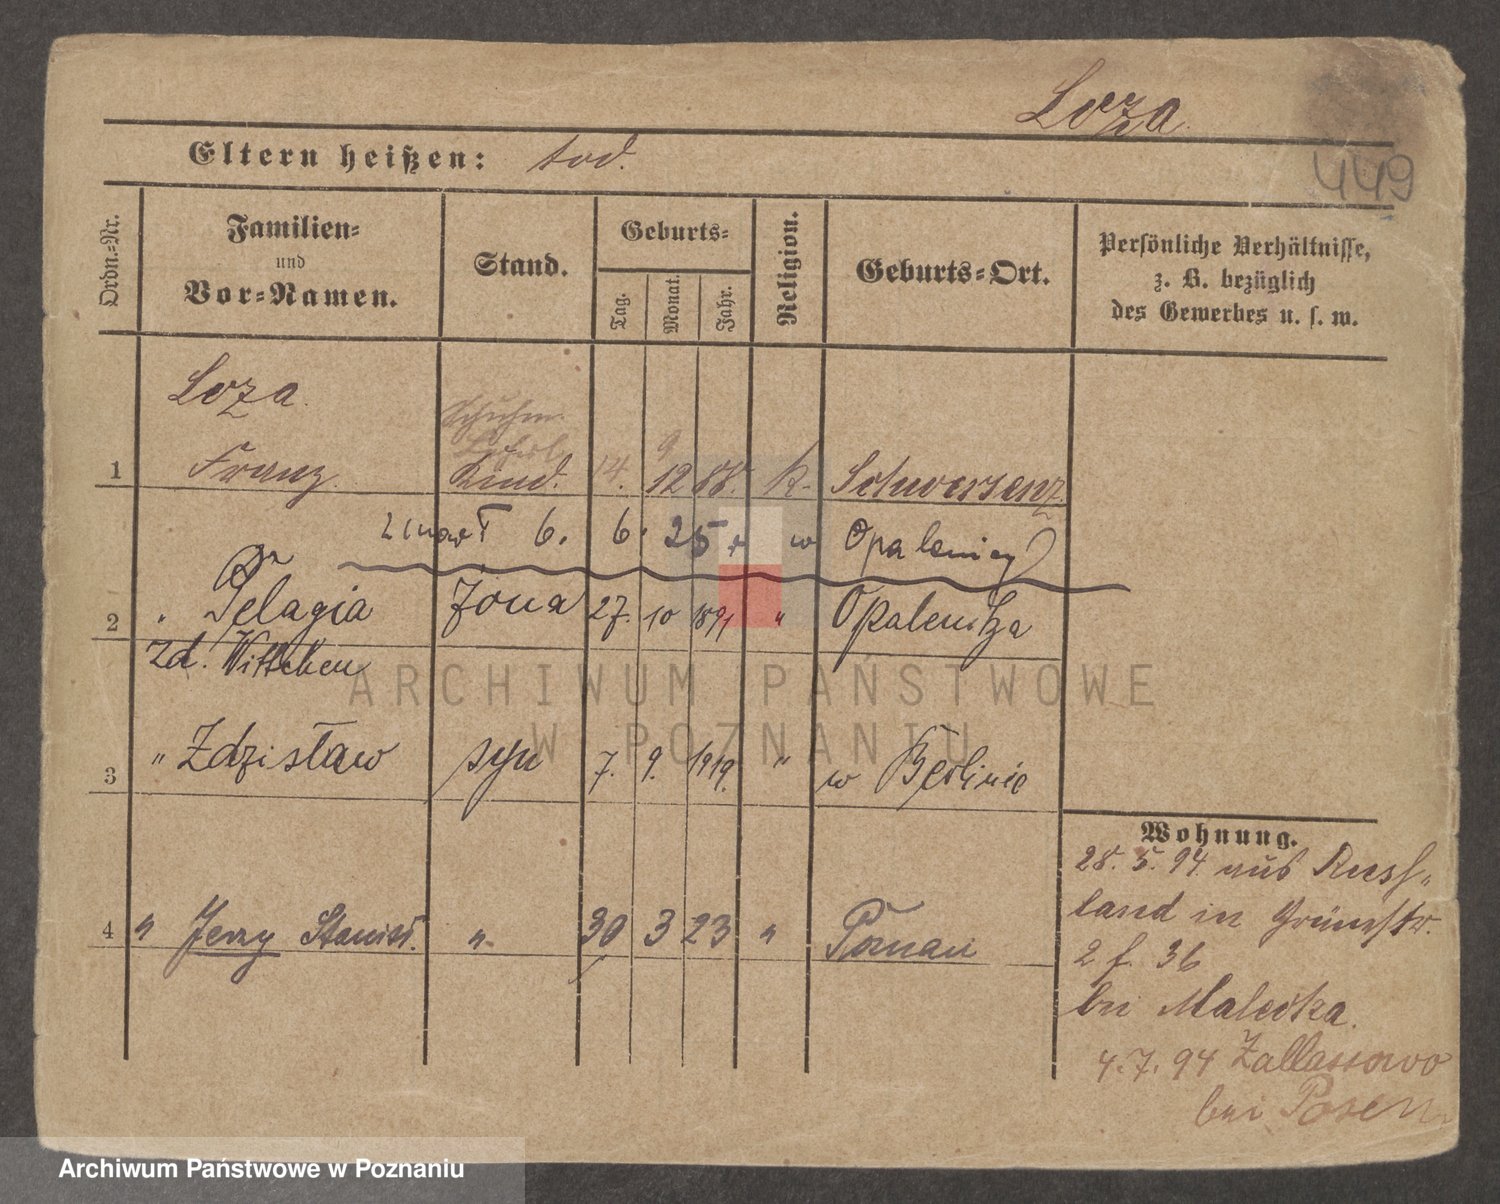 Loza.
Eltern heißen: tod.
449
Ordn.-Nr.
Familien-
und
Vor-Namen.
Stand.
Geburts-
Tag.
Monat.
Jahr.
Religion.
Geburts-Ort.
Persönliche Verhältnisse,
z. B. bezüglich
des Gewerbes u. s. w.
Loza.
Schuhm.
9
1 Franz. Kind. 14. 12 88. k. Schwersenz.
zmarł 6. 6. 25 r w Opalenicy
2 " Pelagia żona 27. 10 1891 " Opalenitza
zd. Wittchen
3 " Zdzisław syn 7. 9. 1919. " w Berlinie
4 " Jerzy Stanisł. " 30 3 23 " Poznań
Wohnung.
28. 5. 94. aus Russ-
land in Grünstr.
2 f. 36
bei Maleska.
4. 7. 94 Zallassowo
bei Posen
ARCHIWUM PAŃSTWOWE
W POZNANIU
Archiwum Państwowe w Poznaniu